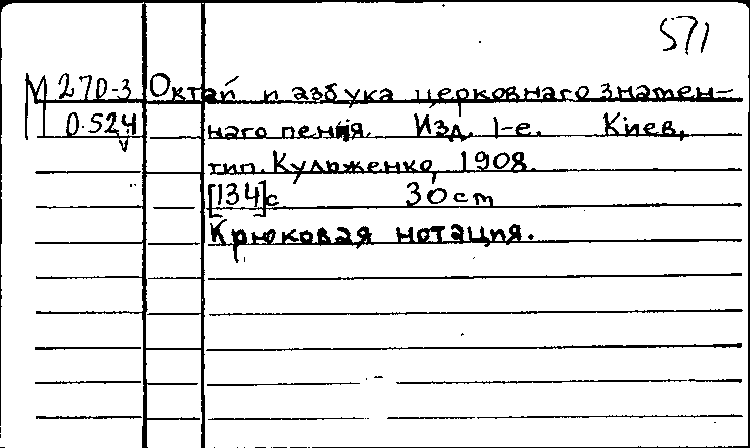 571
М 270-3 Октай и азбука церковнаго знамен-
0.524 наго пения. Изд. 1-е. Киев,
тип. Кульженко, 1908.
[134]с 30 cm
Крюковая нотация.